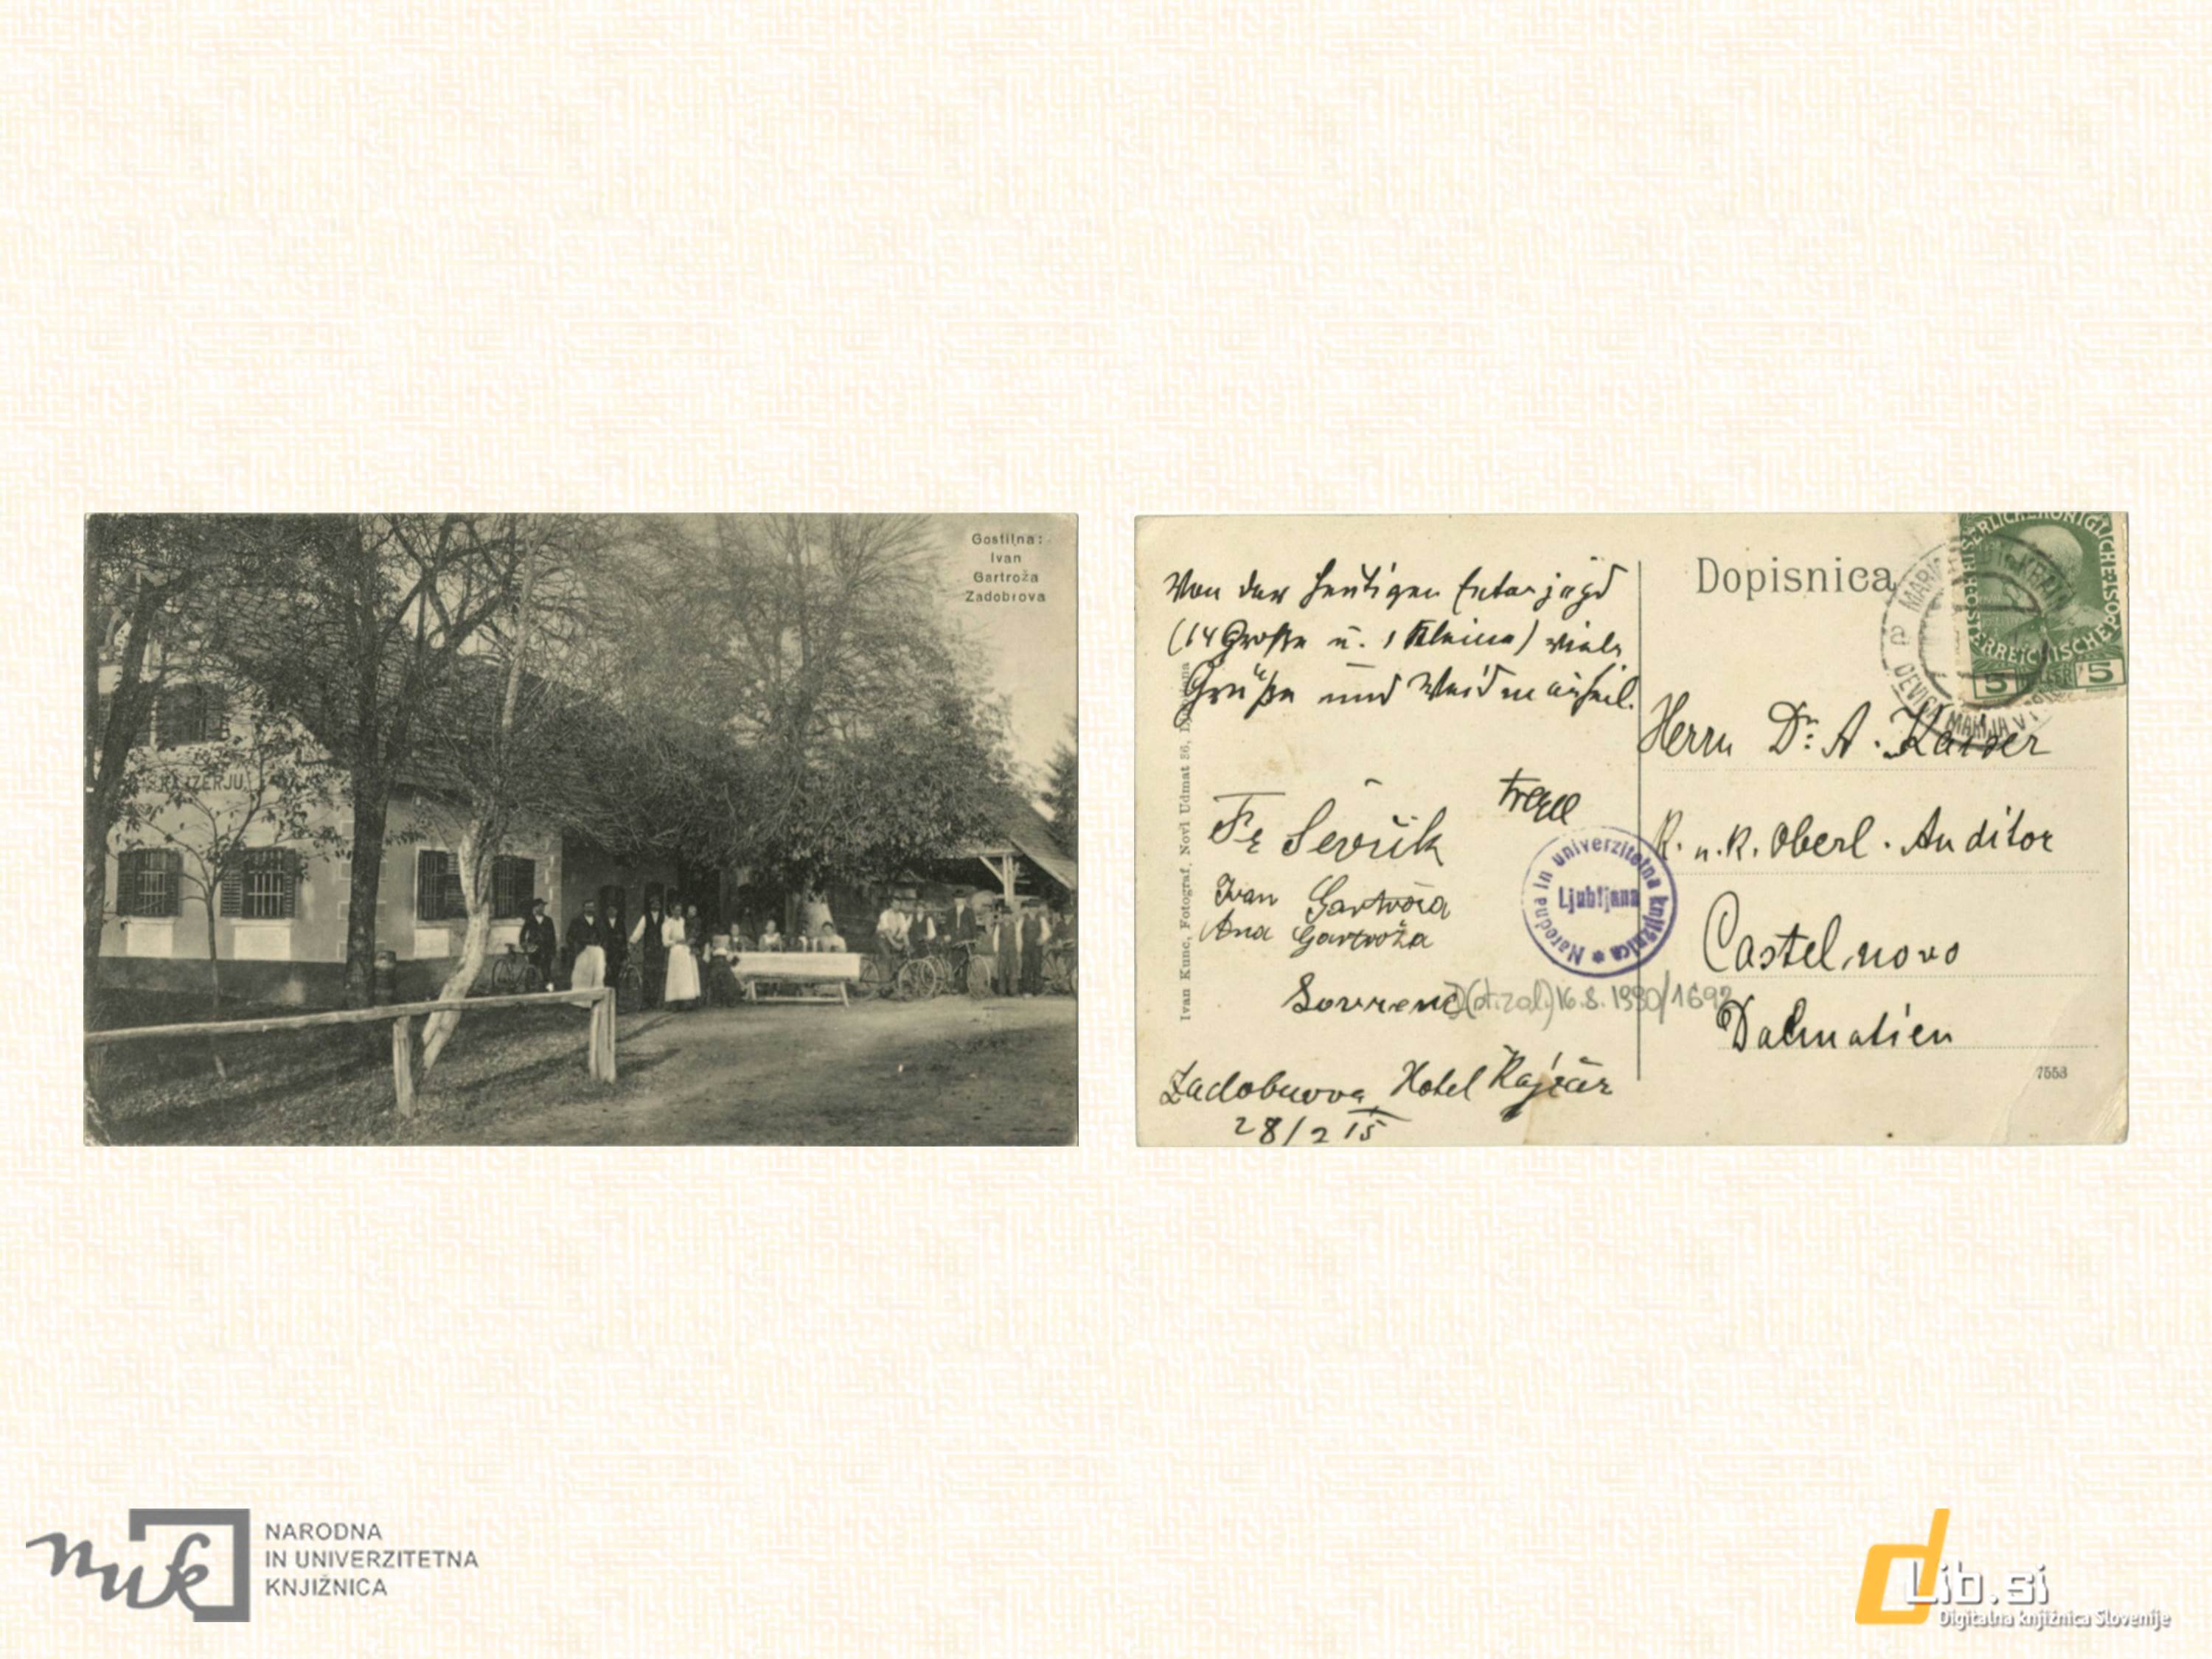 Gostilna:
Ivan
Gartroža
Zadobrova
KAJZERJU
Dopisnica
Von der heutigen Entenjagd
(14 Große u. 1 Kleine) viele
Grüße und Weidmannsheil.
Ivan Kunc, Fotograf, Novi Udmat 86, Ljubljana
Fr
Ivan Gartroža
Ana Gartroža
Zadobrova, Hotel Kajzer
28/2 15
Narodna in univerzitetna knjižnica
Ljubljana
16.8.1990/1692
KAISERLICHE KÖNIGLICHE ÖSTERREICHISCHE POST
5 5
DEVICA MARIJA
Herrn Dr. A. Kaiser
K. u. K. Oberl. Auditor
Castelnovo
Dalmatien
7553
nuk
NARODNA
IN UNIVERZITETNA
KNJIŽNICA
dLib.si
Digitalna knjižnica Slovenije